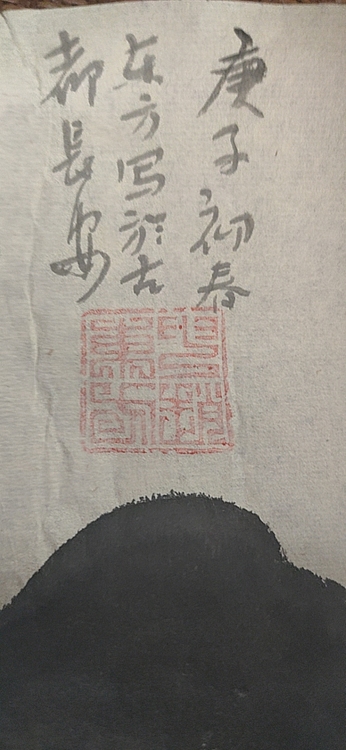 庚子初春
东方写於古
都長安